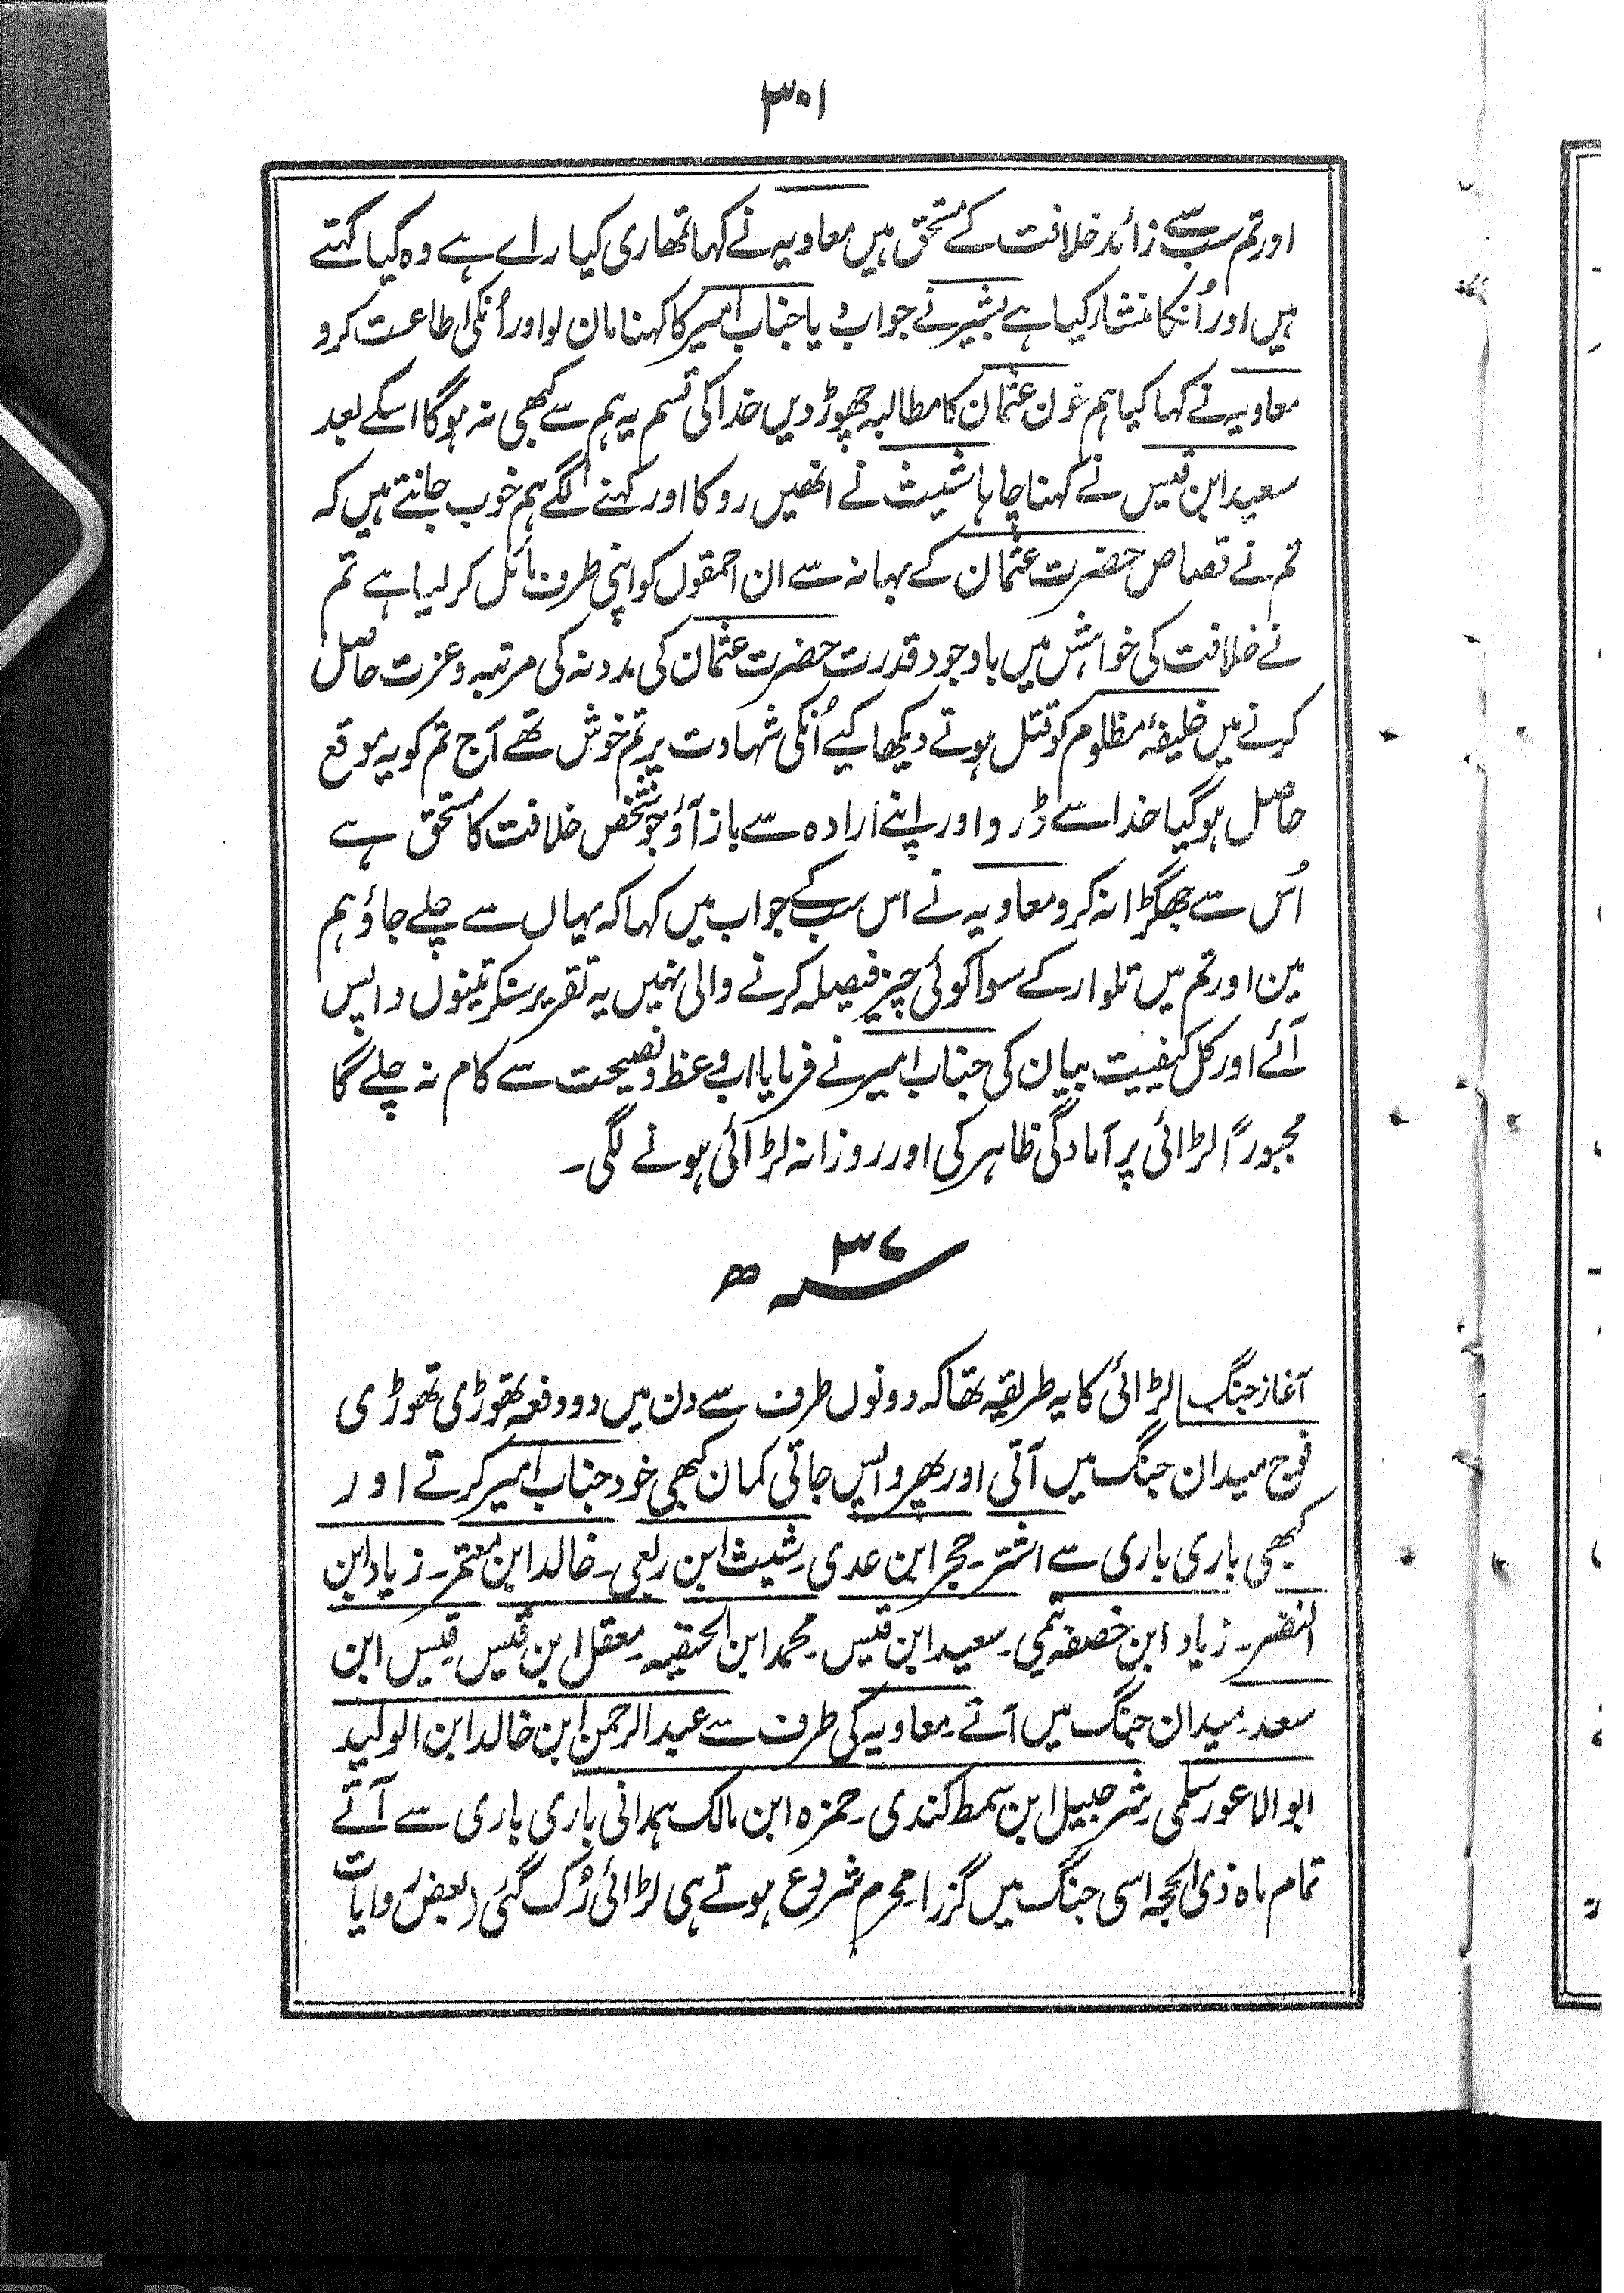 ۳۰۱
اور تم سب سے زائد خلافت کے مستحق ہیں معاویہ نے کہا تمھاری کیا راے ہے وہ کیا کہتے
ہیں اور اُنکا منشار کیا ہے بشیر نے جواب دیا جناب امیر کا کہنا مان لو اور اُنکی اطاعت کرو
معاویہ نے کہا کیا ہم خون عثمان کا مطالبہ چھوڑ دیں خدا کی قسم یہ ہم سے کبھی نہ ہوگا اسکے بعد
سعید ابن قیس نے کہنا چاہا شیث نے انھیں روکا اور کہنے لگے ہم خوب جانتے ہیں کہ
تم نے قصاص حضرت عثمان کے بہانہ سے ان احمقوں کو اپنی طرف مائل کر لیا ہے تم
نے خلافت کی خواہش میں باوجود قدرت حضرت عثمان کی مدد نہ کی مرتبہ و عزت حاصل
کرنے میں خلیفۂ مظلوم کو قتل ہوتے دیکھا کیے اُنکی شہادت پر تم خوش تھے آج تم کو یہ موقع
حاصل ہو گیا خدا سے ڈرو اور اپنے ارادہ سے باز آؤ جو شخص خلافت کا مستحق ہے
اُس سے جھگڑا نہ کرو معاویہ نے اس سب کے جواب میں کہا کہ یہاں سے چلے جاؤ ہم
مین اور تم میں تلوار کے سوا کوئی چیز فیصلہ کرنے والی نہیں یہ تقریر سنکر تینوں واپس
آئے اور کل کیفیت بیان کی جناب امیر نے فرمایا اب وعظ و نصیحت سے کام نہ چلے گا
مجبوراً لڑائی پر آمادگی ظاہر کی اور روزانہ لڑائی ہونے لگی۔
سنہ ۳۷ ھ
آغاز جنگ لڑائی کا یہ طریقہ تھا کہ دونوں طرف سے دن میں دو دفعہ تھوڑی تھوڑی
فوج میدان جنگ میں آتی اور پھر واپس جاتی کمان کبھی خود جناب امیر کرتے اور
کبھی باری باری سے اشتر۔ حجر ابن عدی۔ شیث ابن ربعی۔ خالد ابن معتمر۔ زیاد ابن
النضر۔ زیاد ابن خصفہ تیمی۔ سعید ابن قیس۔ محمد ابن الحنفیہ۔ معقل ابن قیس۔ قیس ابن
سعد۔ میدان جنگ میں آتے۔ معاویہ کی طرف سے عبد الرحمن ابن خالد ابن الولید
ابو الاعور سلمی۔ شرجبیل ابن سمط کندی۔ حمزہ ابن مالک ہمدانی باری باری سے آتے
تمام ماہ ذی الحجہ اسی جنگ میں گزرا۔ محرم شروع ہوتے ہی لڑائی رُک گئی (بعض روایات